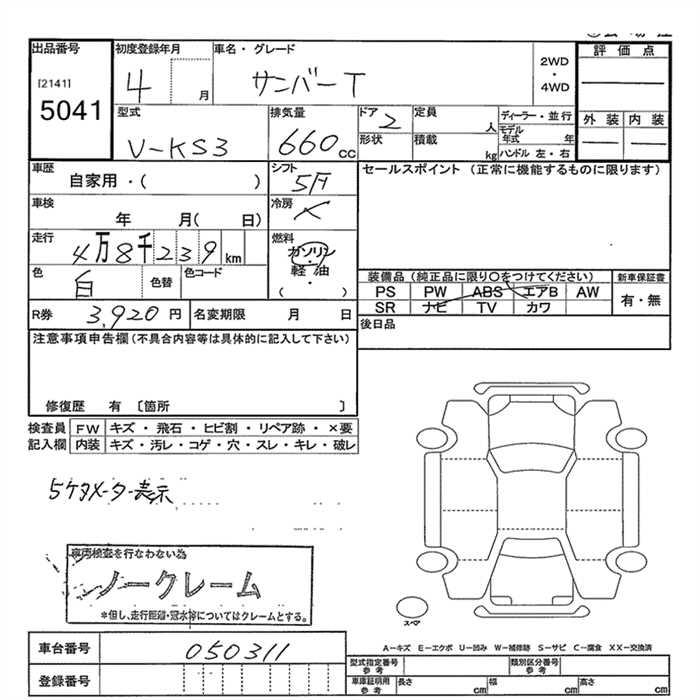 出品番号 初度登録年月 車名・グレード 評価点
[2141] 4 月 サンバーT 2WD・4WD
5041
型式 排気量 ドア 定員 ディーラー・並行 外装 内装
V-KS3 660cc 2 人 モデル年式 年
形状 積載 kg ハンドル 左・右
車歴 シフト セールスポイント (正常に機能するものに限ります)
自家用・( ) 5F
車検 冷房
年 月( 日) ×
走行 燃料
4万8千239km ガソリン・軽油・( )
色 色替 色コード 装備品(純正品に限り○をつけてください) 新車保証書
白 PS PW ABS エアB AW 有・無
SR ナビ TV カワ
R券 3,920円 名変期限 月 日 後日品
注意事項申告欄(不具合内容等は具体的に記入して下さい)
修復歴 有 〔箇所 〕
検査員 FW キズ・飛石・ヒビ割・リペア跡・×要
記入欄 内装 キズ・汚レ・コゲ・穴・スレ・キレ・破レ
5ケタメーター表示
車両検査を行なわない為
ノークレーム
*但し、走行距離・冠水等についてはクレームとする。
スペア
車台番号 050311 A−キズ E−エクボ U−凹み W−補修跡 S−サビ C−腐食 XX−交換済
登録番号 型式指定番号 参考 類別区分番号 参考
車庫証明用 参考 長さ cm 幅 cm 高さ cm